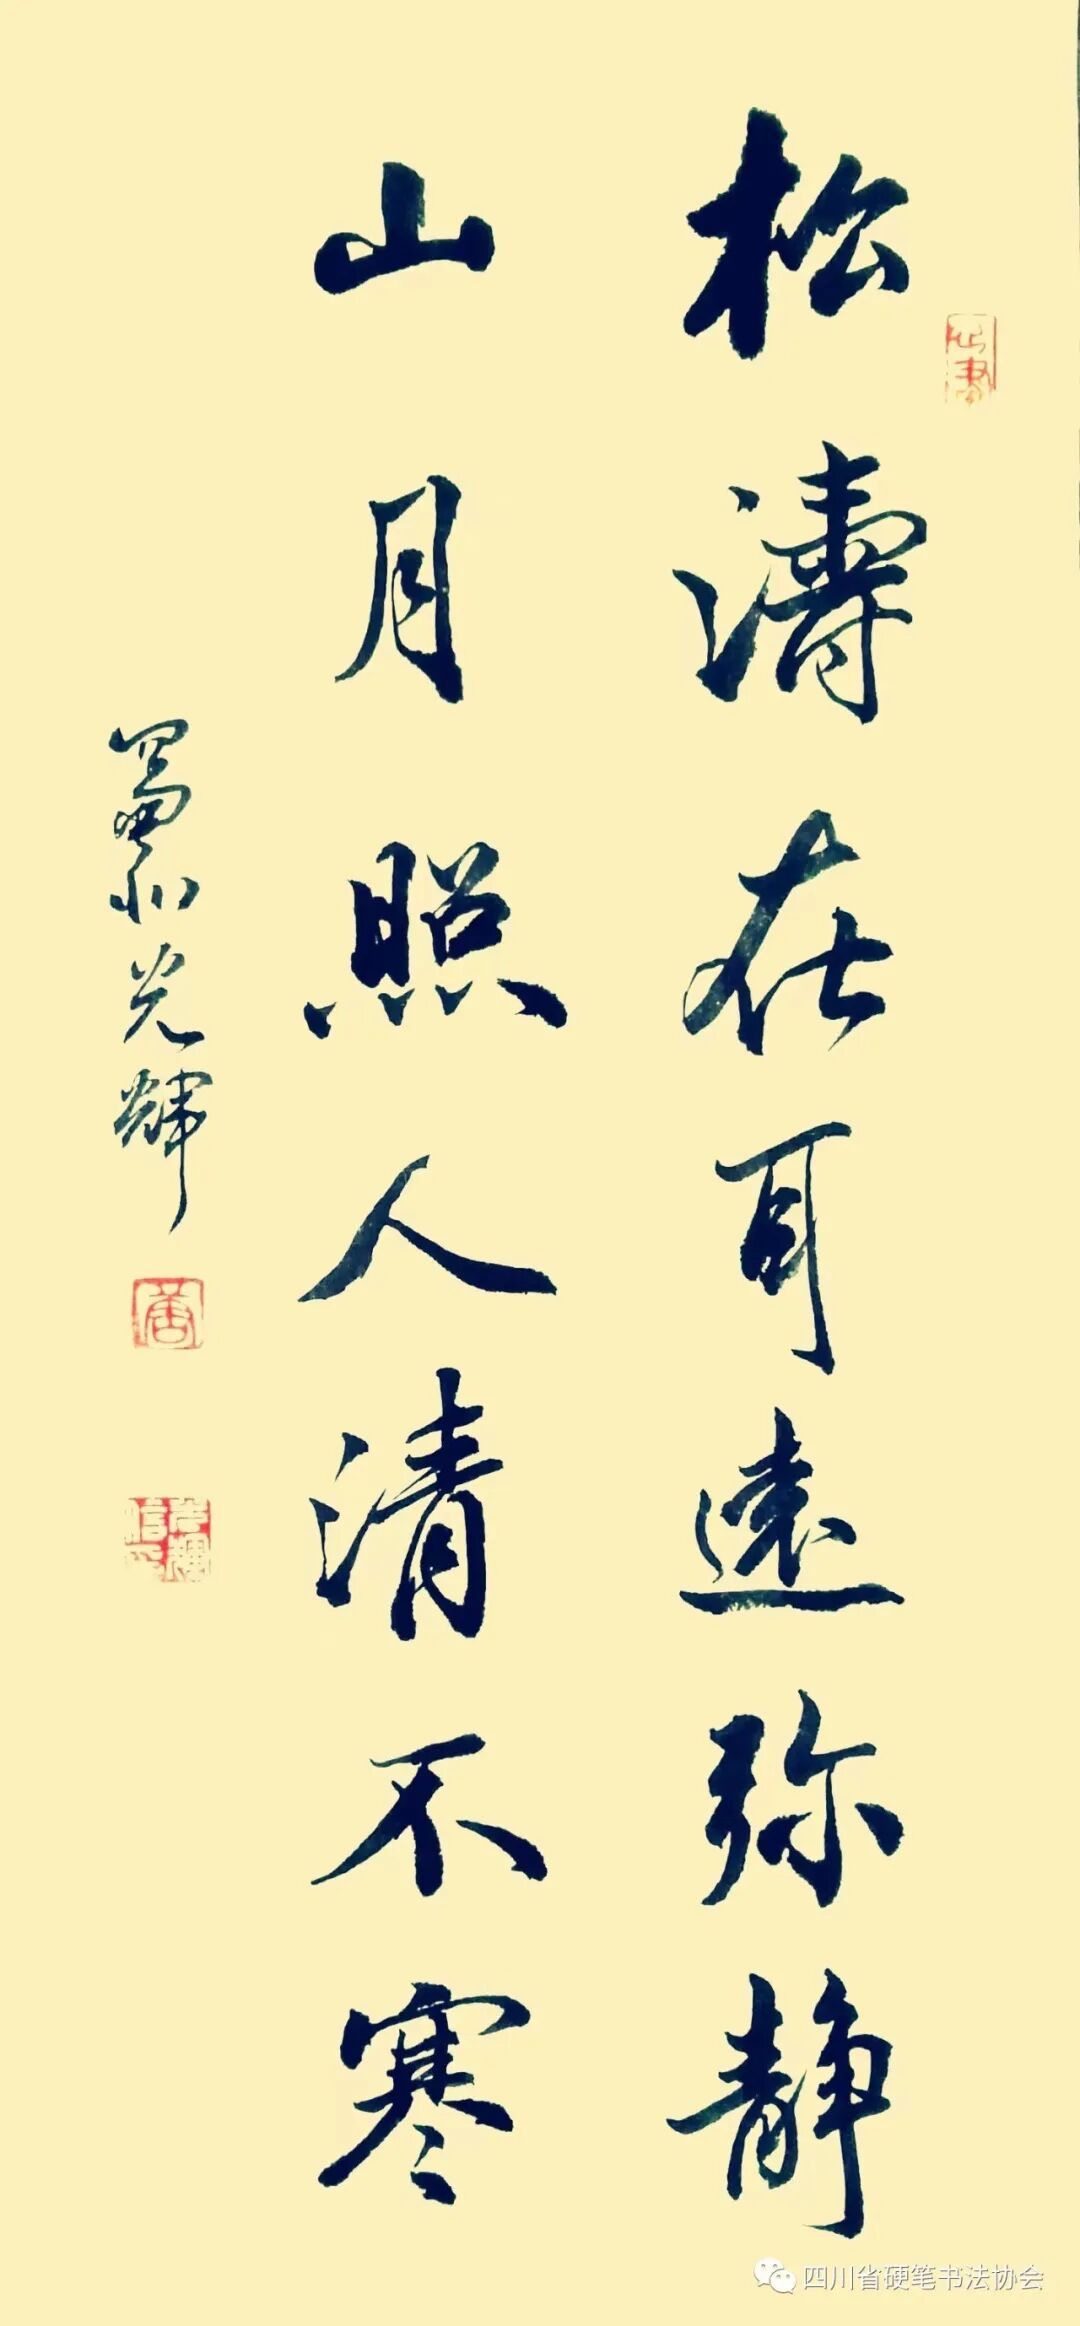 松濤在耳遠弥静
山月照人清不寒
光輝
四川省硬笔书法协会